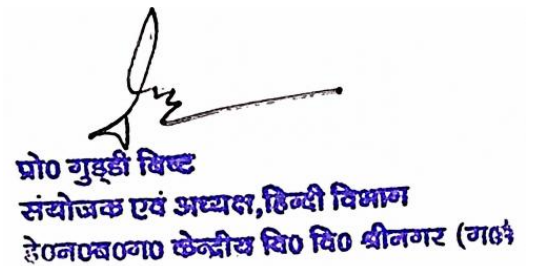 प्रो0 गुड्डी बिष्ट
संयोजक एवं अध्यक्ष,हिन्दी विभाग
हे0न0ब0ग0 केन्द्रीय वि0 वि0 श्रीनगर (ग0